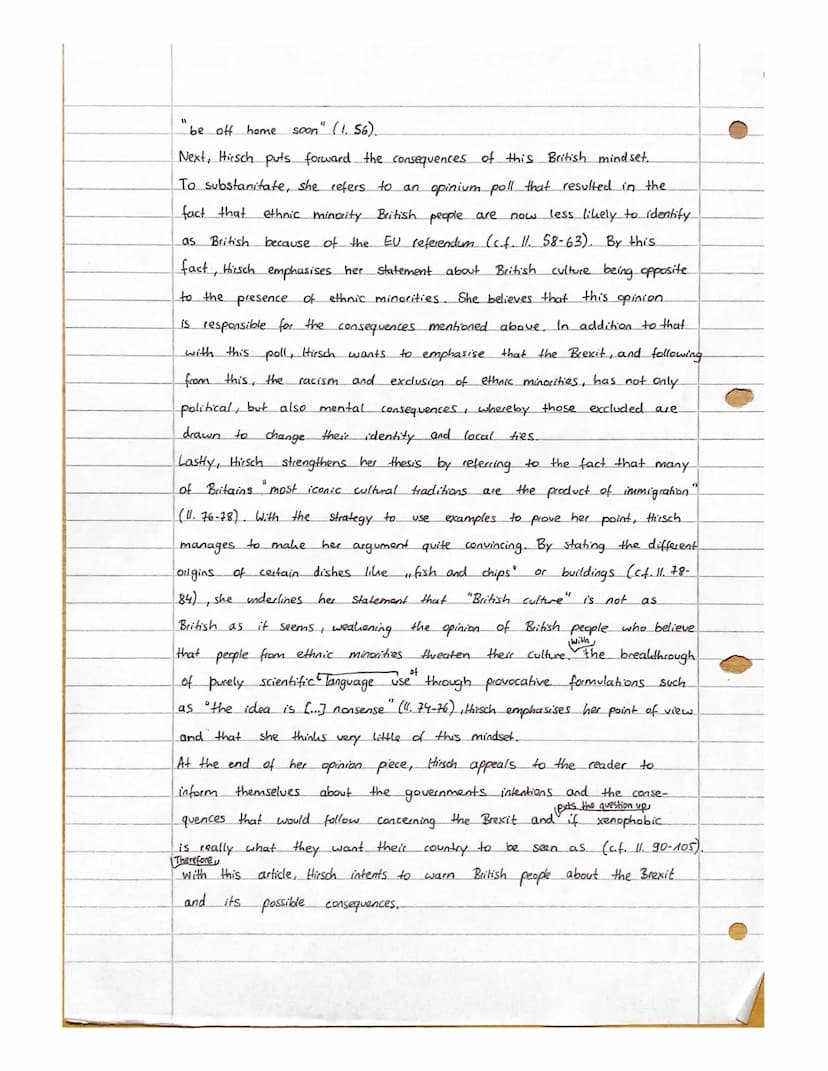 "be off home soon" (l. 56).
Next, Hirsch puts forward the consequences of this British mindset.
To substanitate, she refers to an opinium poll that resulted in the
fact that ethnic minority British people are now less likely to identify
as British because of the EU referendum (c.f. ll. 58-63). By this
fact, Hirsch emphasises her statement about British culture being opposite
to the presence of ethnic minorities. She believes that this opinion
is responsible for the consequences mentioned above. In addition to that
with this poll, Hirsch wants to emphasise that the Brexit, and following
from this, the racism and exclusion of ethnic minorities, has not only
political, but also mental consequences, whereby those excluded are
drawn to change their identity and local ties.
Lastly, Hirsch strengthens her thesis by referring to the fact that many
of Britains "most iconic cultural traditions are the product of immigration"
(ll. 76-78). With the strategy to use examples to prove her point, Hirsch
manages to make her argument quite convincing. By stating the different
origins of certain dishes like „fish and chips" or buildings (c.f. ll. 78-
84), she underlines her statement that "British culture" is not as
British as it seems, weakening the opinion of British people who believe
that people from ethnic minorities threaten their culture. With the breakthrough
of purely scientific language use of through provocative formulations such
as "the idea is [...] nonsense" (ll. 74-76), Hirsch emphasises her point of view
and that she thinks very little of this mindset.
At the end of her opinion piece, Hirsch appeals to the reader to
inform themselves about the governments intentions and the conse-
quences that would follow concerning the Brexit and puts the question up if xenophobic
is really what they want their country to be seen as (c.f. ll. 90-105).
Therefore, with this article, Hirsch intents to warn British people about the Brexit
and its possible consequences.